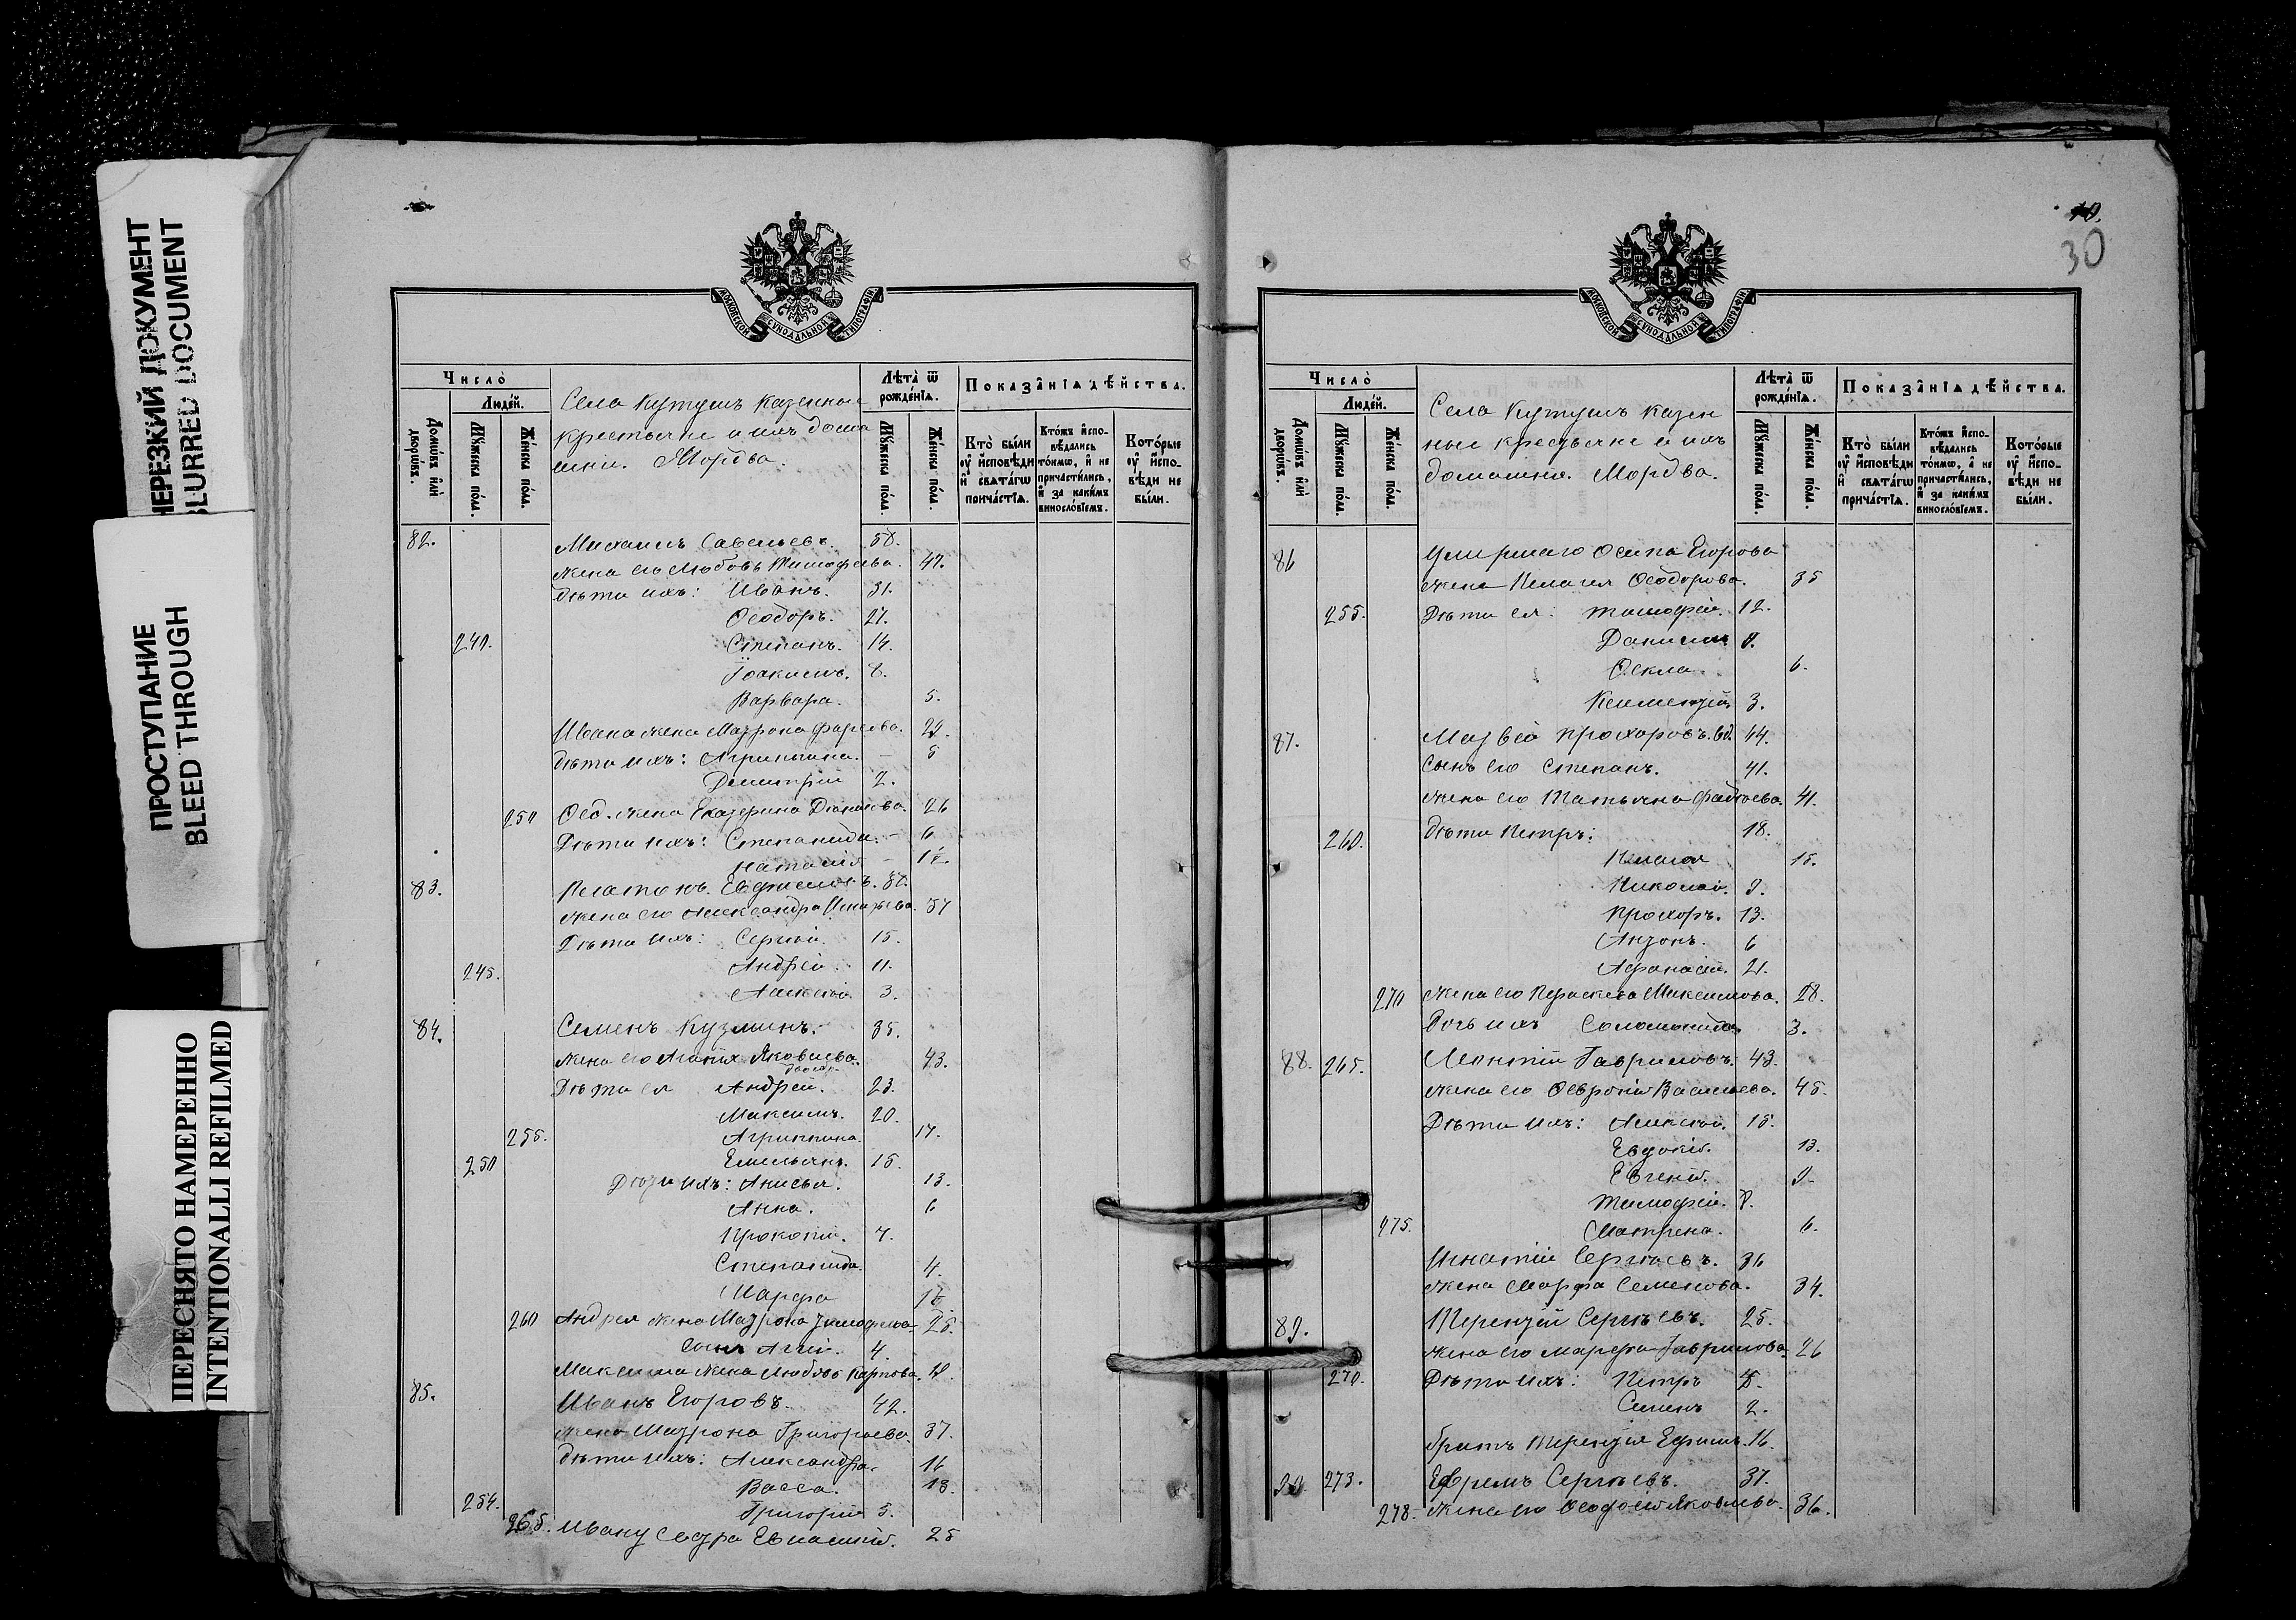 НЕРЕЗКИЙ ДОКУМЕНТ
BLURRED DOCUMENT
ПРОСТУПАНИЕ
BLEED THROUGH
ПЕРЕСНЯТО НАМЕРЕННО
INTENTIONALLI REFILMED
МОСКОВСКОЙ СѴНОДАЛЬНОЙ ТИПОГРАФІИ
Число̀
Люде́й.
Домѡ́въ и҆лѝ дворѡ́въ.
Мꙋ́жеска по́лꙋ.
Же́нска по́лꙋ.
Села Кутушъ казенные
крестьяне и ихъ домаш
ніи. Мордва.
Лѣта̀ ѿ рожде́нїѧ.
Мꙋ́жеска по́лꙋ.
Же́нска по́лꙋ.
Показа̑нїѧ дѣ́йства.
Кто̀ бы́ли ᲂу҆ и҆сповѣ́ди и҆ свѧта́гѡ прича́стїѧ.
Кто́жъ и҆сповѣ́дались то́кмѡ, а҆ не причасти́лись, и҆ за каки́мъ винословїемъ.
Кото́рые ᲂу҆ и҆сповѣ́ди не бы́ли.
82. Михаилъ Савельевъ. 58.
жена его Любовь Тимофеева. 47.
дѣти ихъ: Иванъ. 31.
Ѳеодоръ. 27.
240. Степанъ. 14.
Іоакимъ. 8.
Варвара. 5.
Ивана жена Матрона
дѣти ихъ: Агриппина. 5
Димитрій 2.
250 Ѳеод. жена Екатерина 26
Дѣти ихъ: Степанида. 6
83. Платонъ
жена его Александра 57
Дѣти ихъ: Сергѣй. 15.
245. Андрей. 11.
Алексѣй. 3.
84. Семенъ Кузминъ. 35.
жена его Агафія Яковлева. 43.
Дѣти ея Андрей. 23.
Максимъ. 20.
255. Агриппина. 17.
250 Емельянъ. 15.
Дѣти ихъ: Анисья. 13.
Анна. 6
Прокопій. 7.
Степанида. 4.
Марфа
260 Андрея жена Матрона Тимофеева 25.
сынъ 4.
Максима жена Любовь Карпова.
85. Иванъ Егоровъ. 42.
жена Матрона Григорьева. 37.
дѣти ихъ: Александра. 16
Васса. 13.
254. Григорій 5.
265. Ивану сестра 25
30
МОСКОВСКОЙ СѴНОДАЛЬНОЙ ТИПОГРАФІИ
Число̀
Люде́й.
Домѡ́въ и҆лѝ дворѡ́въ.
Мꙋ́жеска по́лꙋ.
Же́нска по́лꙋ.
Села Кутушъ казен
ные крестьяне и ихъ
домашніи. Мордва.
Лѣта̀ ѿ рожде́нїѧ.
Мꙋ́жеска по́лꙋ.
Же́нска по́лꙋ.
Показа̑нїѧ дѣ́йства.
Кто̀ бы́ли ᲂу҆ и҆сповѣ́ди и҆ свѧта́гѡ прича́стїѧ.
Кто́жъ и҆сповѣ́дались то́кмѡ, а҆ не причасти́лись, и҆ за каки́мъ винословїемъ.
Кото́рые ᲂу҆ и҆сповѣ́ди не бы́ли.
86 Умершаго Осипа Егорова
жена Пелагея Ѳеодорова. 35
255. Дѣти ея: Тимофей. 12.
Даниилъ
Ѳекла. 6.
Климентій 3.
87. Матвей Прохоровъ. вд. 44.
Сынъ его Степанъ. 41.
жена его Татьяна Фадеева. 41.
260. дѣти Петръ: 18.
Пелагея 15.
Николай. 9.
Прохоръ. 13.
Антонъ. 6
Афанасій. 21.
270 жена его Параскева Максимова. 28.
Дочь ихъ Соломонида. 3.
88. 265. Леонтій Гавриловъ. 43.
жена его Васильева. 45.
Дѣти ихъ: Алексѣй. 15.
Евдокія. 13.
Евгенія. 9.
Тимофей.
275. Матрена. 6.
Игнатій Сергѣевъ. 36
жена Марфа Семенова. 34.
89. Терентій Сергѣевъ. 25.
жена его Марфа Гаврилова. 26
270. Дѣти ихъ: Петръ 5.
Семенъ 2.
братъ Терентія Ефимъ. 16.
90 273. Ефремъ Сергѣевъ. 37.
278. жена его Ѳеодосія Яковлева. 36.